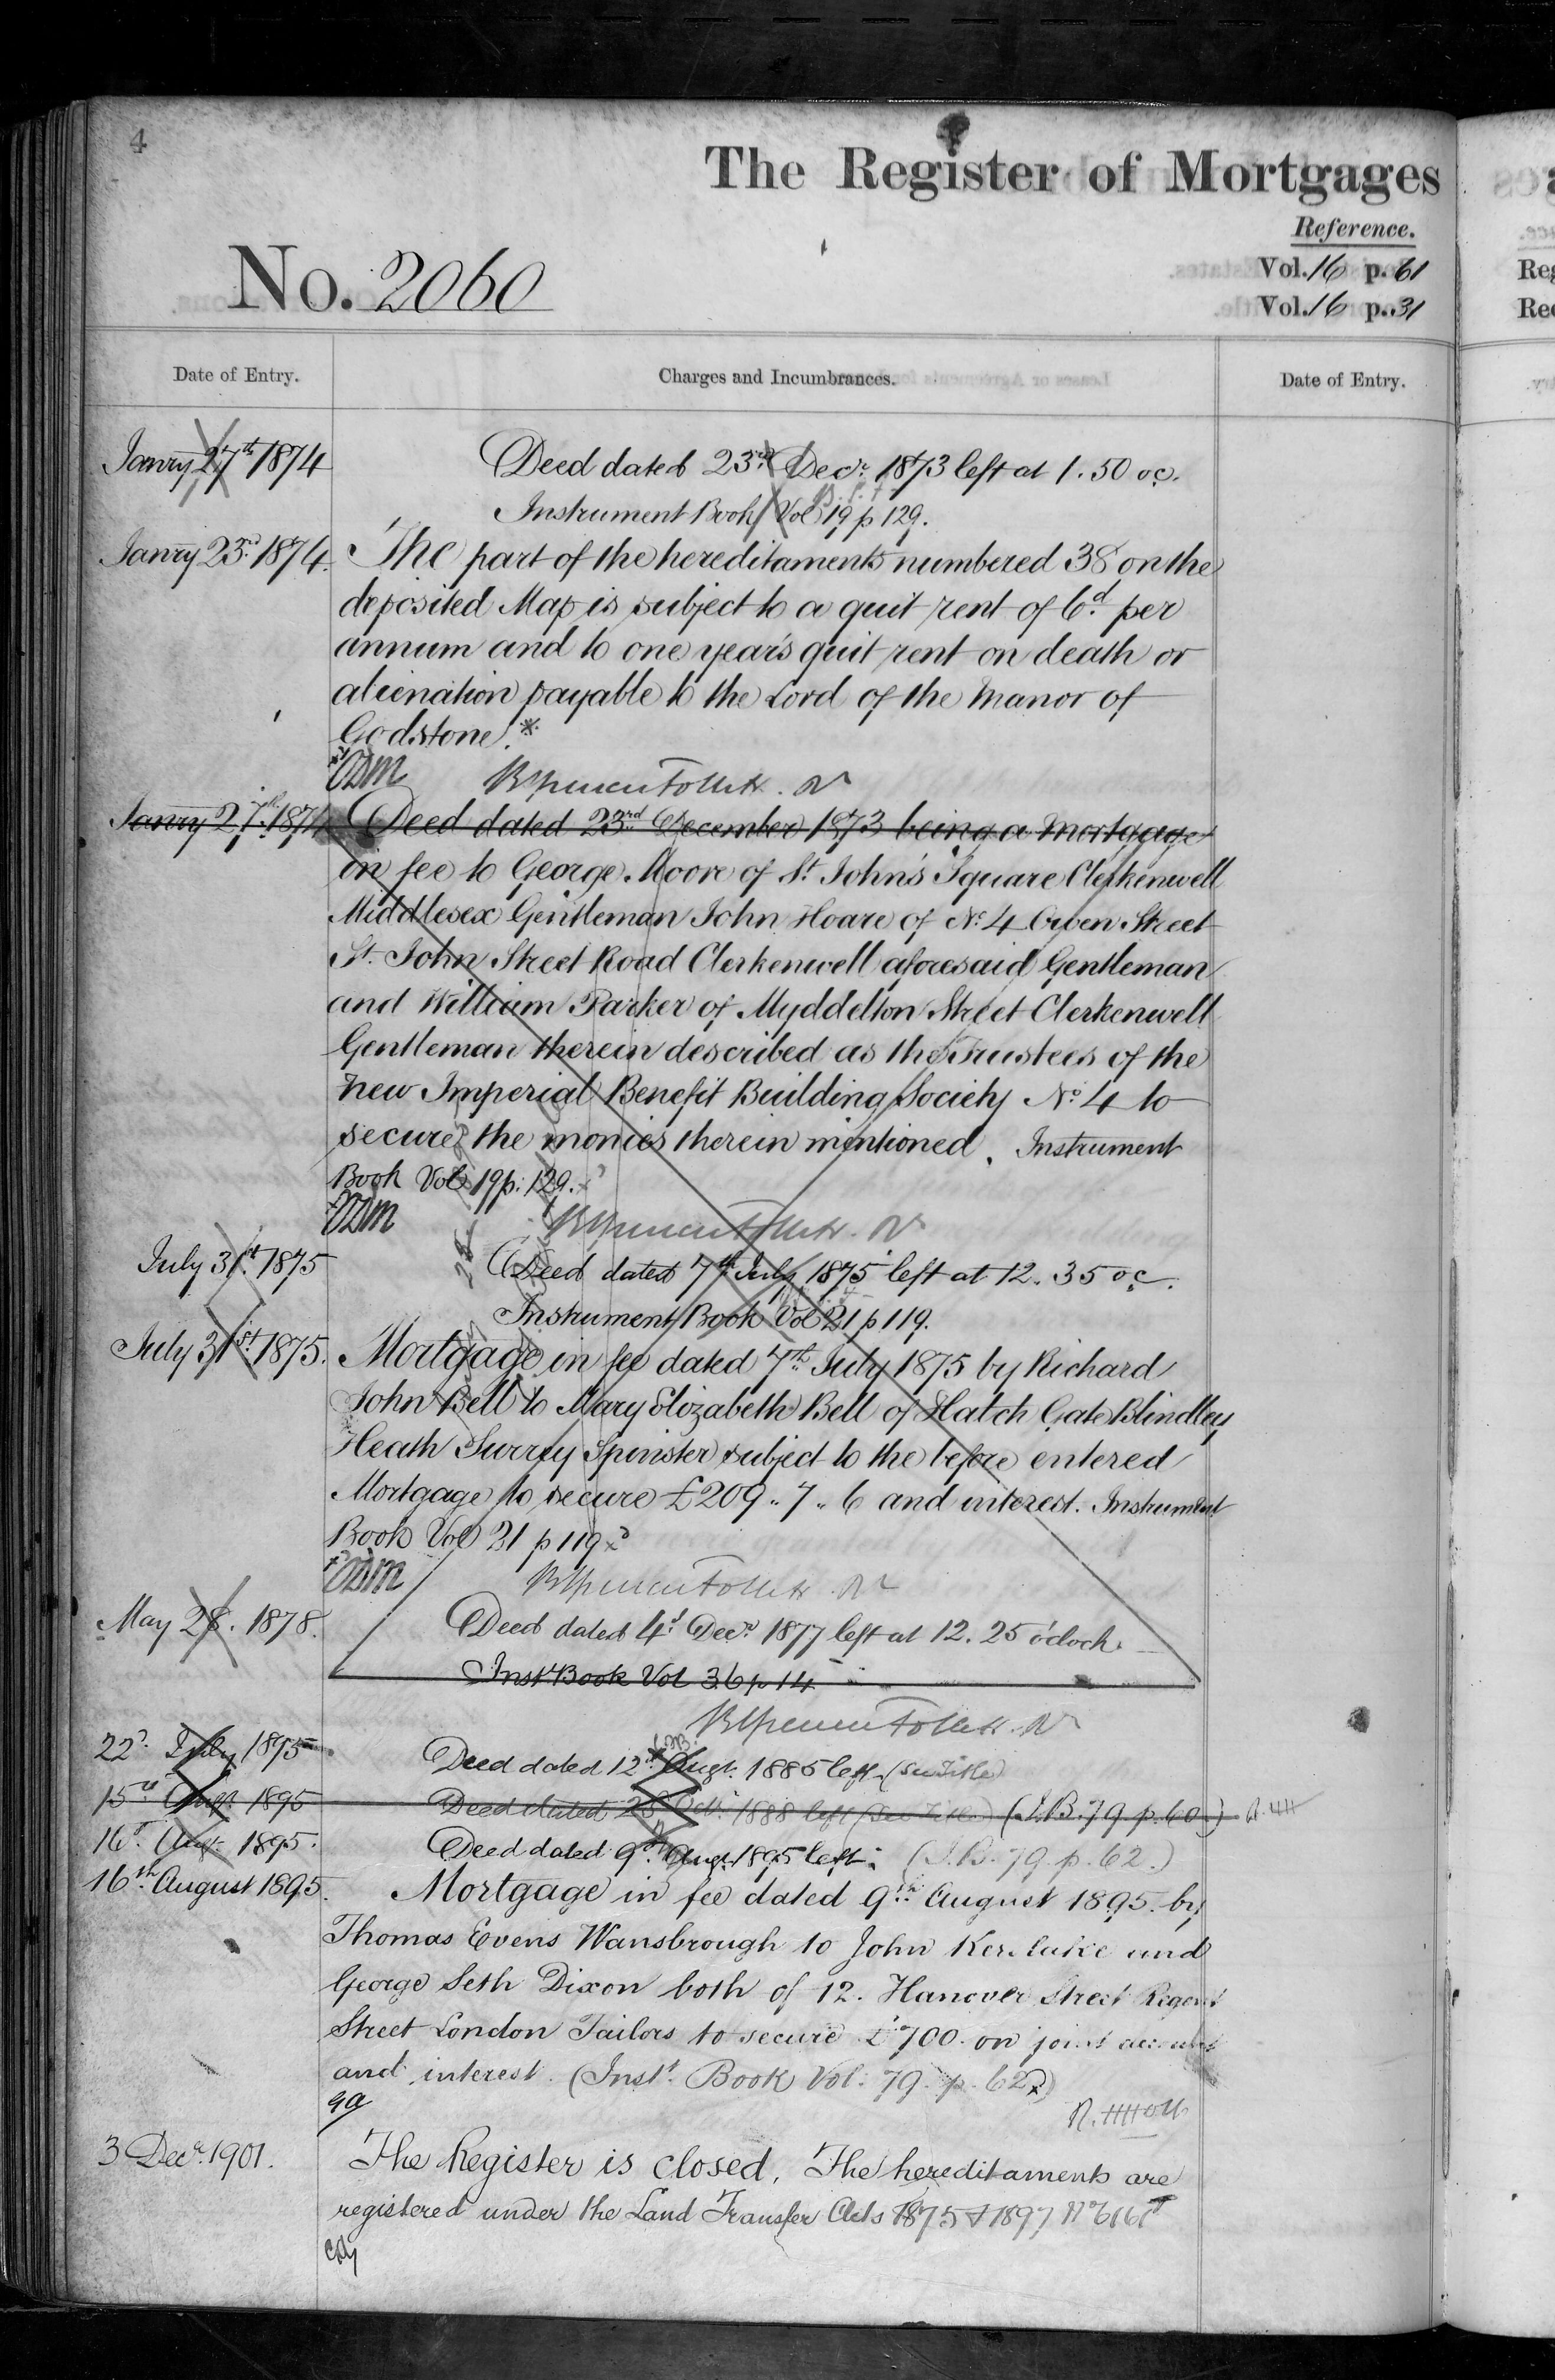 4
The Register of Mortgages
Reference.
No. 2060
Vol. 16 p. 61
Vol. 16 p. 31
Date of Entry.
Charges and Incumbrances.
Date of Entry.
Janry 27th 1874
Deed dated 23rd Decr. 1873 left at 1.50 oc.
Instrument Book Vol 19 p 129.
Janry 23rd 1874.
The part of the hereditaments numbered 38 on the
deposited Map is subject to a quit rent of 6d. per
annum and to one year's quit rent on death or
alienation payable to the Lord of the Manor of
Godstone.*
Janry 27th 1874
Deed dated 23rd December 1873 being a Mortgage
in fee to George Moore of St. John's Square Clerkenwell
Middlesex Gentleman John Hoare of No. 4 Owen Street
St. John Street Road Clerkenwell aforesaid Gentleman
and William Parker of Myddelton Street Clerkenwell
Gentleman therein described as the Trustees of the
New Imperial Benefit Building Society No. 4 to
secure the monies therein mentioned. Instrument
Book Vol 19 p: 129.
July 31st. 1875
Deed dated 7th July 1875 left at 12.35 oc.
Instrument Book Vol 21 p 119.
July 31st. 1875.
Mortgage in fee dated 7th July 1875 by Richard
John Bell to Mary Elizabeth Bell of Hatch Gate Blindley
Heath Surrey Spinster subject to the before entered
Mortgage to secure £209..7..6 and interest. Instrument
Book Vol 21 p 119
May 28. 1878.
Deed dated 4th Decr 1877 left at 12.25 o'clock.
Inst Book Vol 36 p 14
22d. July 1895
Deed dated 12th Augt. 1885 left (See Title)
15th Augt. 1895
Deed dated 25 Octr. 1888 left (See Title) (I.B. 79. p. 60.)
16th Augt. 1895.
Deed dated 9th Augt. 1895 left. (I.B. 79. p. 62.)
16th August 1895.
Mortgage in fee dated 9th August 1895 by
Thomas Evens Wansbrough to John Kerslake and
George Seth Dixon both of 12. Hanover Street Regent
Street London Tailors to secure £700. on joint account
and interest. (Inst. Book Vol. 79. p. 62)
3 Decr. 1901.
The Register is closed. The hereditaments are
registered under the Land Transfer Acts 1875 & 1897 No